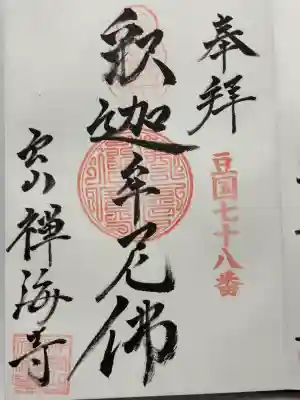 奉拝
豆国七十八番
釈迦牟尼佛
禅海寺